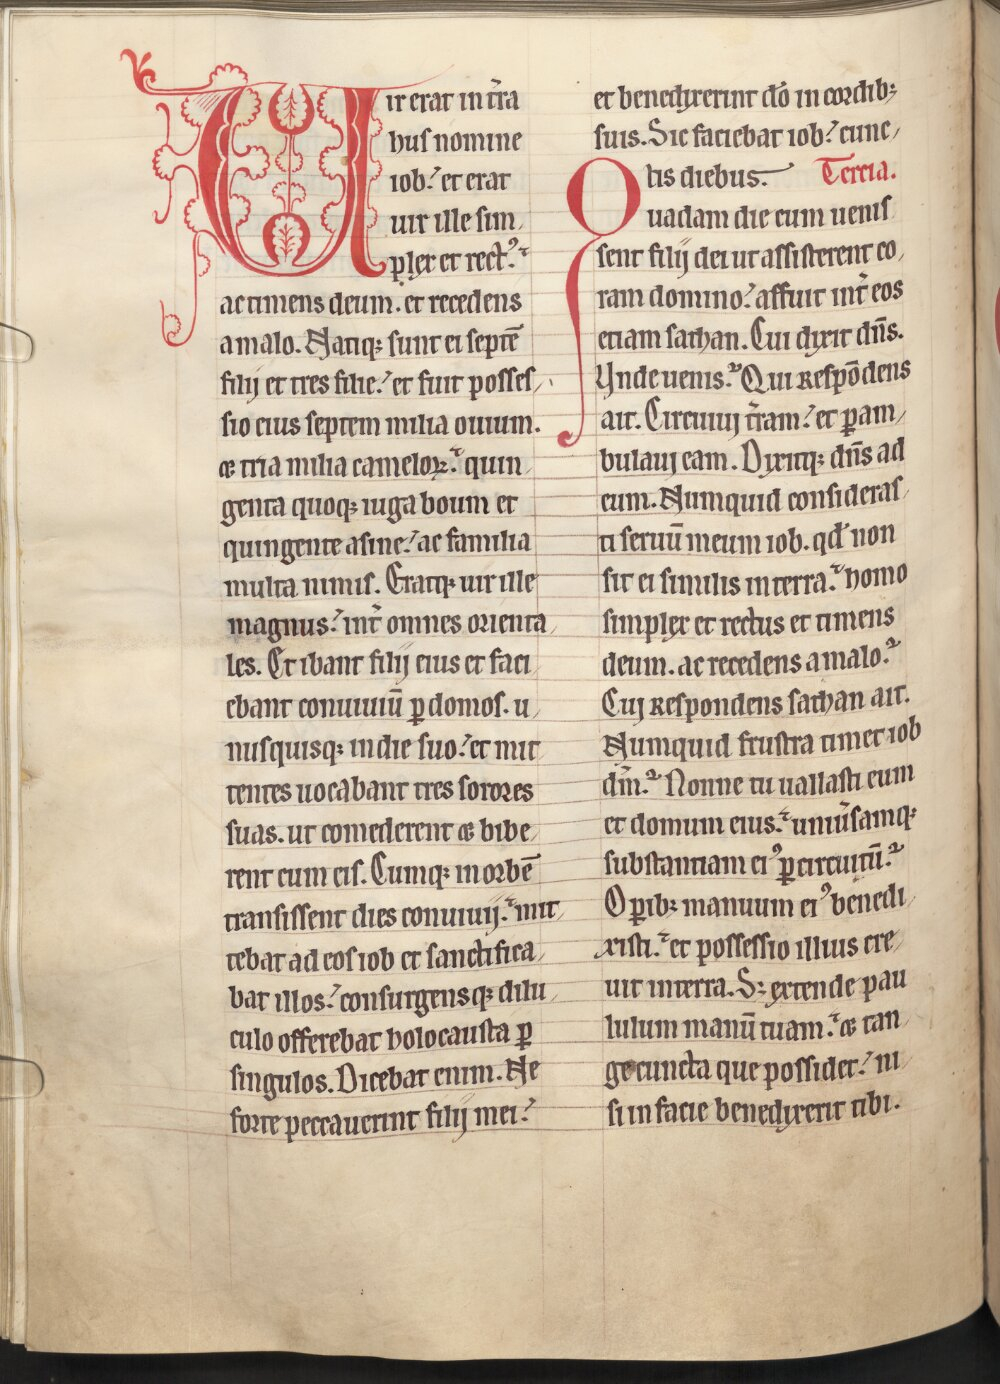 Uir erat in t̄ra
hus nomine
iob. et erat
uir ille sim
plex et rectꝰ.
ac timens deum. et recedens
a malo. Natiqꝫ sunt ei septē
filij et tres filie. et fuit posses
sio eius septem milia ouium.
⁊ tria milia cameloꝝ. quin
genta quoqꝫ iuga boum et
quingente asine. ac familia
multa nimis. Eratqꝫ uir ille
magnus. int̄ omnes orienta
les. Et ibant filij eius et faci
ebant conuiuiū ꝑ domos. u
nusquisqꝫ in die suo. et mit
tentes uocabant tres sorores
suas. ut comederent ⁊ bibe
rent cum eis. Cumqꝫ in orbē
transissent dies conuiuij. mit
tebat ad eos iob et sanctifica
bat illos. consurgensqꝫ dilu
culo offerebat holocausta ꝑ
singulos. Dicebat enim. Ne
forte peccauerint filij mei.
et benedixerint dō in cordibꝫ
suis. Sic faciebat iob. cunc
tis diebus. Tercia.
Quadam die cum uenis
sent filij dei ut assisterent co
ram domino. affuit int̄ eos
etiam sathan. Cui dixit dn̄s.
Vnde uenis. Qui respōdens
ait. Circuiuj t̄ram. et ꝑam
bulauj eam. Dixitqꝫ dn̄s ad
eum. Numquid consideras
ti seruū meum iob. qd̄ non
sit ei similis in terra. homo
simplex et rectus et timens
deum. ac recedens a malo.
Cuj respondens sathan ait.
Numquid frustra timet iob
dm̄. Nonne tu uallasti eum
et domum eius. uniūsamqꝫ
substantiam eiꝰ ꝑ circuitū.
Oꝑibꝫ manuum eiꝰ benedi
xisti. et possessio illius cre
uit in terra. Sꝫ extende pau
lulum manū tuam. ⁊ tan
ge cuncta que possidet. ni
si in facie benedixerit tibi.